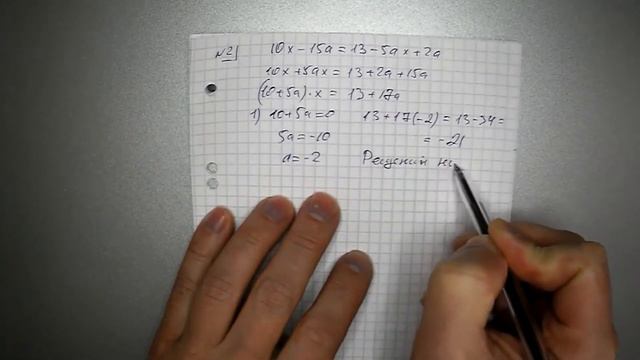 №2
10x - 15a = 13 - 5ax + 2a
10x + 5ax = 13 + 2a + 15a
(10 + 5a) · x = 13 + 17a
1) 10 + 5a = 0 13 + 17(-2) = 13 - 34 =
5a = -10 = -21
a = -2 Решений не